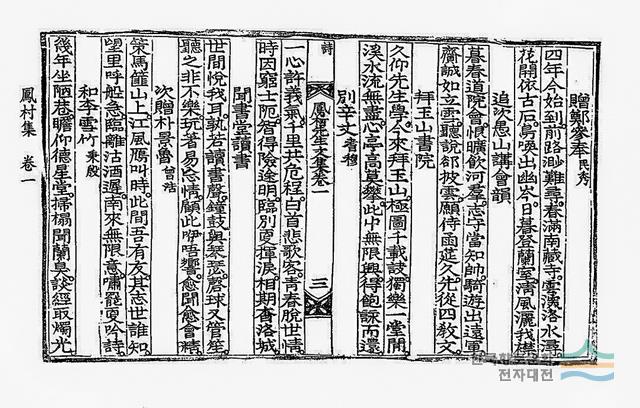 贈鄭峯奉 民秀
四年今始到前路渺難尋春滿南藏寺雲濱洛水潯
花開依古石鳥喚出幽岑今日暮登蘭室淸風灑我襟
追次愚山講會韻
暮春道院會恨曠飮河羣志學當知帥騎遊出遠軍
齋誠如立雪聽說卻披雲願侍函筵久先從四敎文
拜玉山書院
久仰先生學今來拜玉山極圖千載談獨樂一堂閒
溪水流無盡心亭高莫攀此中無限興得飽詠而還
別辛丈 耆穆
詩
鳳村先生文集卷一 三
一心許義氣千里共危程白首悲歌客靑春脫世情
時因窮士智得險途明臨別更揮淚相期洛城
聞書堂讀書
世間悅我耳孰若讀書聲鐘鼓與琴瑟磬球又管笙
聽之非不樂玩者易忘情顧此咿唔響愈聞愈會精
次贈朴景魯 曾浩
策馬山上江風鴈叫時此間吾有友其志世誰知
望里呼船急臨離沽酒遲南來無限意嘯罷更吟詩
和李雪竹 秉殷
幾年坐陋巷瞻仰德星堂掃榻聞蘭臭談經取燭光
鳳村集 卷一
전자대전